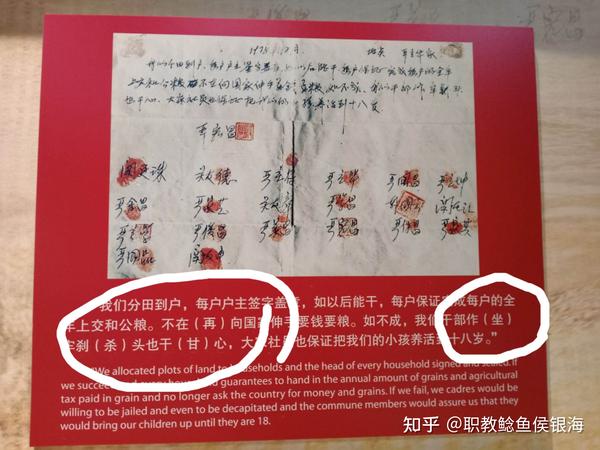 1978.12月 地点 严立华家
我们分田到户 每户户主签字盖章 如以后能干 每户保证完成每户的全年
上交和公粮 不在向国家伸手要钱要粮 如不成 我们干部作牢刹头
也干心 大家社员也保证把我们的小孩养活到十八岁
严宏昌
关廷珠 关友德 严立符 严立华 严国昌 严立坤
严金昌 严家芝 关友章
严立学 严俊昌 严美昌 严宏昌 严付昌
严国品 关友申
“我们分田到户，每户户主签字盖章，如以后能干，每户保证完成每户的全
年上交和公粮。不在（再）向国家伸手要钱要粮。如不成，我们干部作（坐）
牢刹（杀）头也干（甘）心，大家社员也保证把我们的小孩养活到十八岁。”
“We allocated plots of land to households and the head of every household signed and sealed. If
we succeed every household guarantees to hand in the annual amount of grains and agricultural
tax paid in grain and no longer ask the country for money and grains. If we fail, we cadres would be
willing to be jailed and even to be decapitated and the commune members would assure us that they
would bring our children up until they are 18.
知乎 @职教鲶鱼侯银海